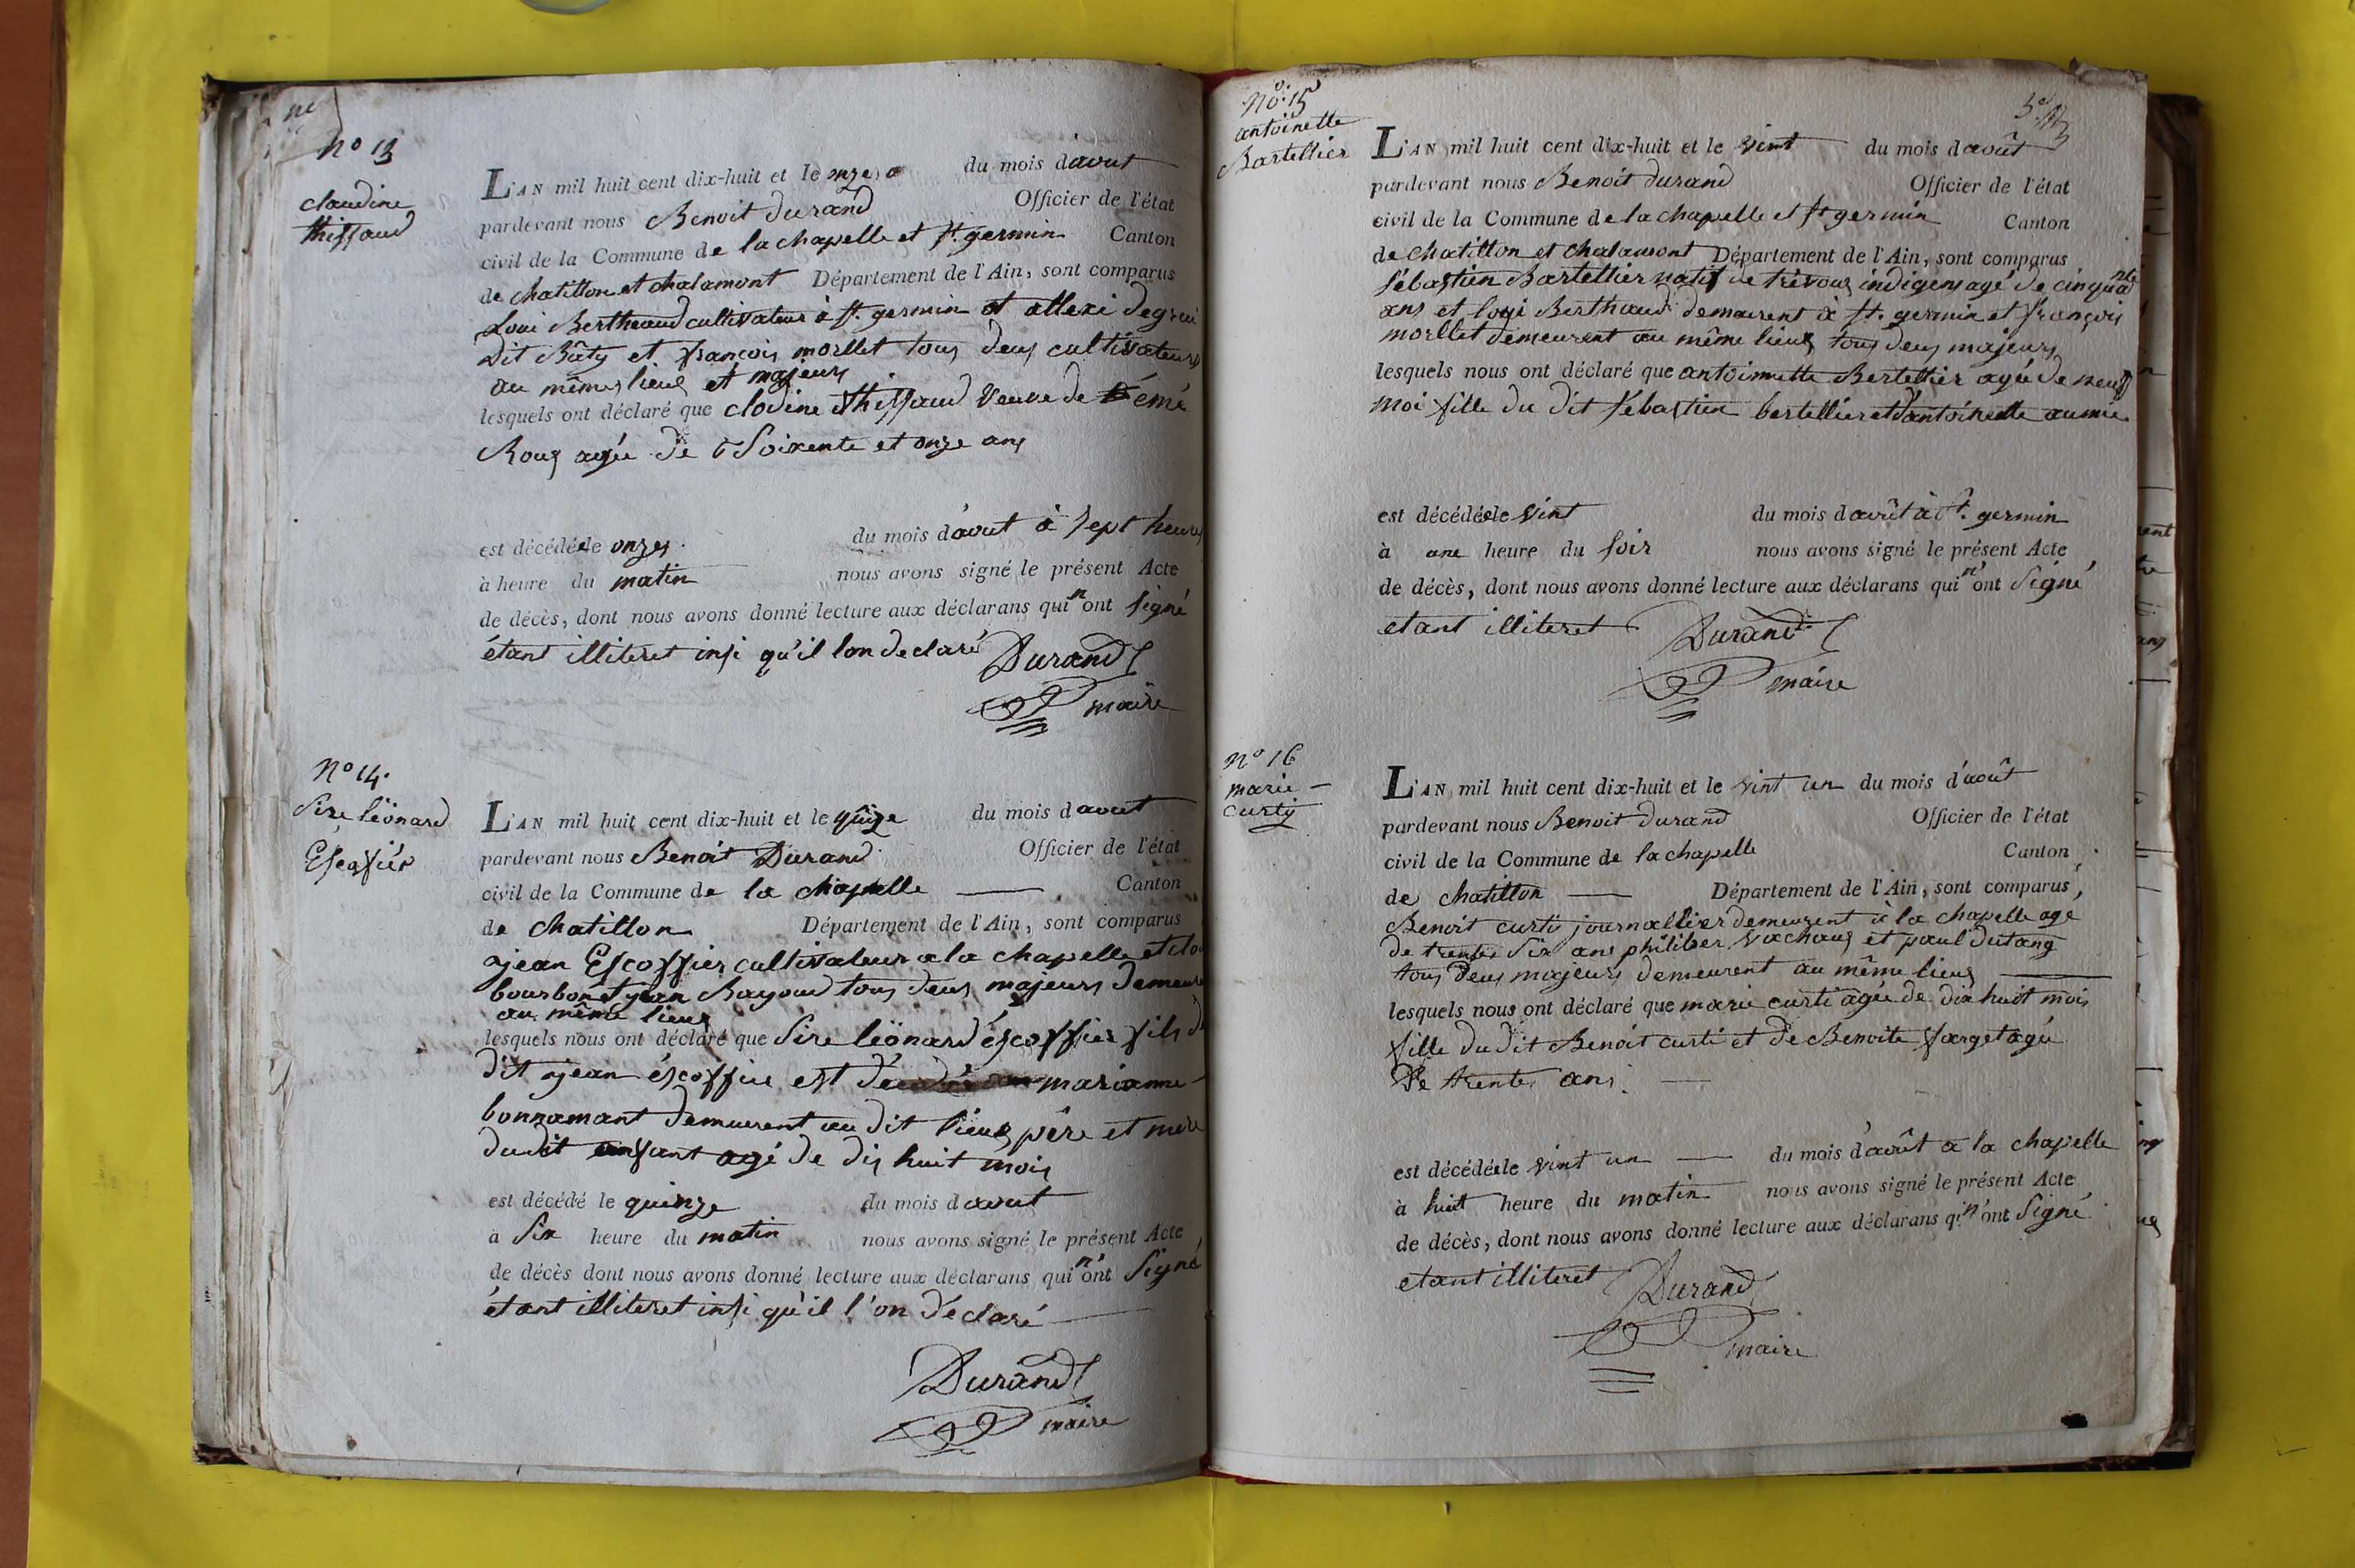 N° 13
claudine
thissaud
L'AN mil huit cent dix-huit et le onze du mois d'avout
pardevant nous Benoit Durand Officier de l'état
civil de la Commune de la chapelle et st. germin Canton
de chatillon et chalamont Département de l'Ain, sont comparus
Loui Bertheaud cultivateur à st. germin et allexi
dit Bâty et francois morllet tous deux cultivateurs
au mêmes lieux et majeurs
lesquels ont déclaré que clodine thissaud veuve de émé
Roux agée de Soixente et onze ans
est décédée le onzes du mois d'avout à sept heures
à heure du matin nous avons signé le présent Acte
de décès, dont nous avons donné lecture aux déclarans qui n'ont signé
étant illiteret insi qu'il lon declaré Durand
maire
N° 14.
Sire lëonard
Escoffier
L'AN mil huit cent dix-huit et le quinze du mois d'avout
pardevant nous Benoit Durand Officier de l'état
civil de la Commune de la chapelle Canton
de Chatillon Département de l'Ain, sont comparus
jean Escoffier cultivateur a la chapelle et
bourbon et jean Bayoud tous deux majeurs demeure
au même lieux
lesquels nous ont déclaré que Sire lëonard éscoffier fils d
dit jean éscoffier est marianne
bonnamant demeurent au dit lieux père et mere
dudit enfant agé de dix huit mois
est décédé le quinze du mois d'avout
à Six heure du matin nous avons signé le présent Acte
de décès dont nous avons donné lecture aux déclarans qui n'ont Signé
étant illiteret insi qu'il l'on déclaré
Durand
maire
N°. 15
antoinette
Bartellier
L'AN mil huit cent dix-huit et le vint du mois d'août
pardevant nous Benoit durand Officier de l'état
civil de la Commune de la chapelle et st germin Canton
de chatillon et chalamont Département de l'Ain, sont comparus
sébastien Bartellier natif de trévoux indigens agé de cinquante
ans et loui Berthaud demeurent à st. germin et françois
morllet demeurent au même lieux tous deux majeurs
lesquels nous ont déclaré que antoinnette Bertellier agée de neuf
moi fille du dit sébastien bertellier et d'antoinette
est décédée le vint du mois d'avût à st. germin
à une heure du soir nous avons signé le présent Acte
de décès, dont nous avons donné lecture aux déclarans qui n'ont Signé
etant illiteret Durand
maire
N° 16
marie
curty
L'AN mil huit cent dix-huit et le vint un du mois d'août
pardevant nous Benoit durand Officier de l'état
civil de la Commune de la chapelle Canton
de chatillon Département de l'Ain, sont comparus,
Benoit curti journallier demeurent à la chapelle agé
de trentes six ans philiber vachoux et paul dutang
tous deux majeurs demeurent au même lieux
lesquels nous ont déclaré que marie curti agée de dix huit mois
fille du dit Benoit curti et de Benoite farget agée
de trentes ans
est décédée le vint un du mois d'avût a la chapelle
à huit heure du matin nous avons signé le présent Acte
de décès, dont nous avons donné lecture aux déclarans qi n'ont Signé
etant illiteret Durand
maire